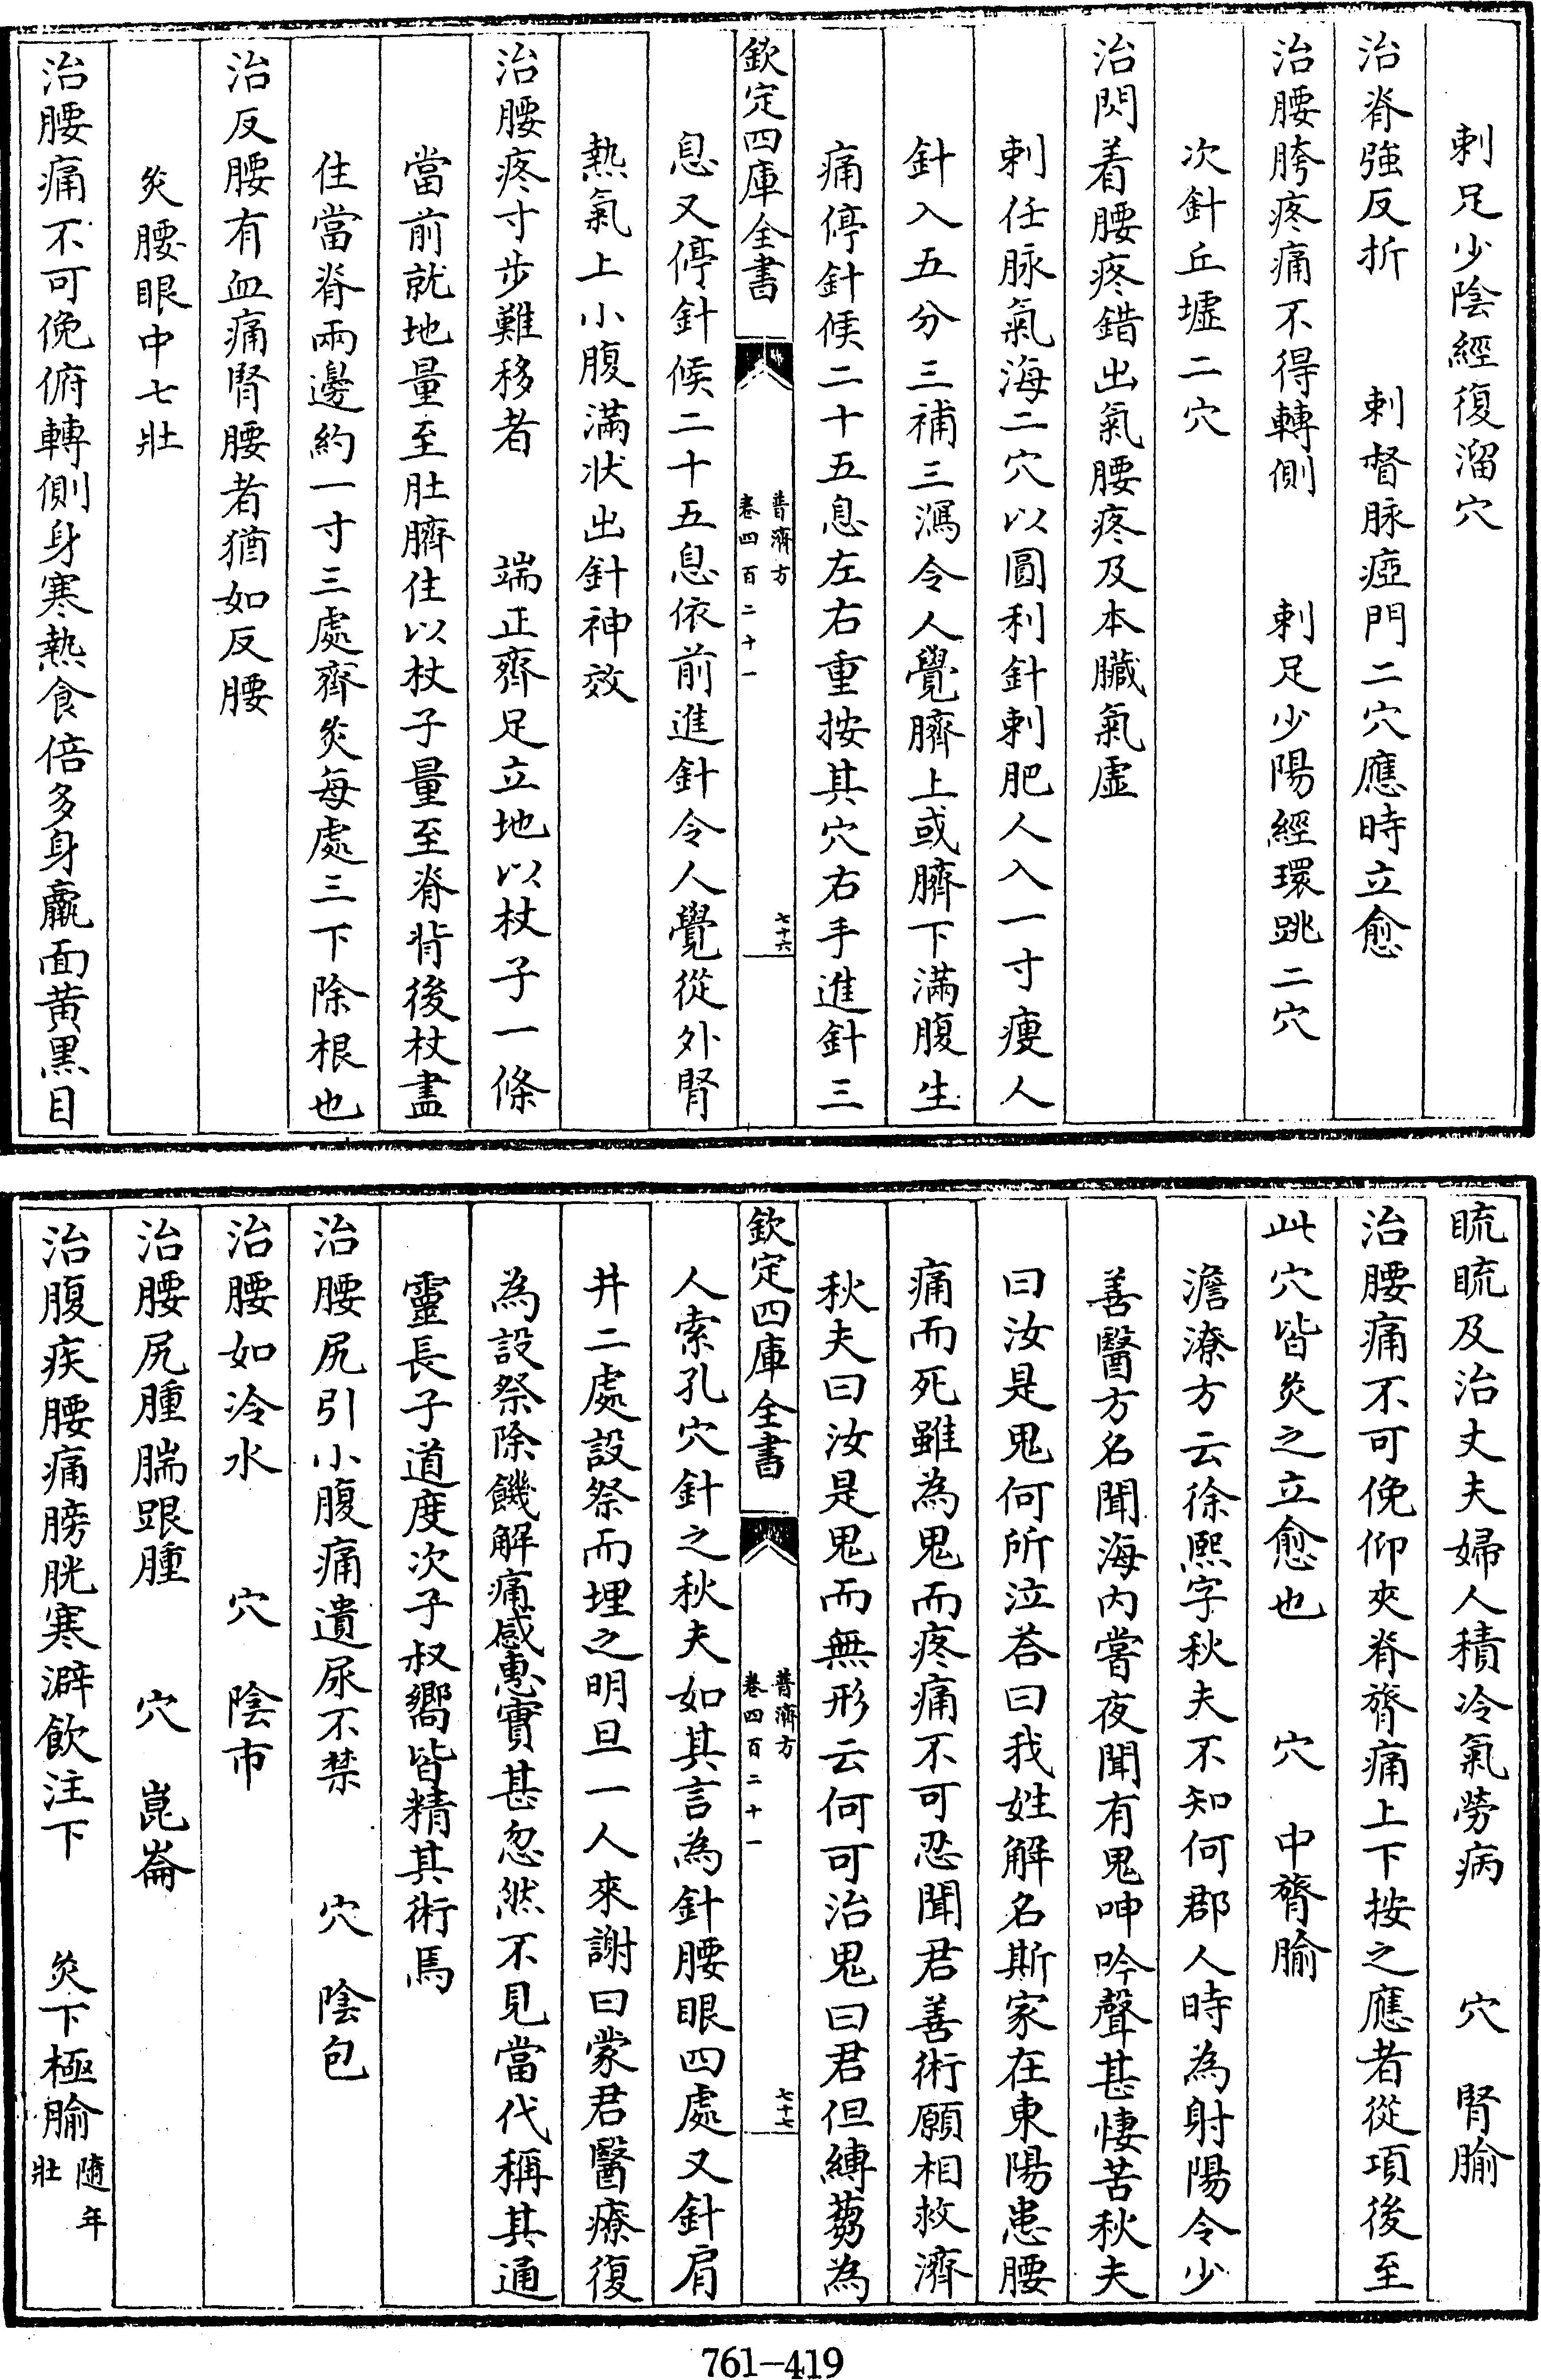 刺足少陰經復溜穴
治脊強反折　刺督脉瘂門二穴應時立愈
治腰胯疼痛不得轉側　刺足少陽經環跳二穴
次針丘墟二穴
治閃着腰疼錯出氣腰疼及本臟氣虛
刺任脉氣海二穴以圓利針刺肥人入一寸瘦人
針入五分三補三瀉令人覺臍上或臍下滿腹生
痛停針候二十五息左右重按其穴右手進針三
欽定四庫全書　普濟方　卷四百二十一　七十六
息又停針候二十五息依前進針令人覺從外腎
熱氣上小腹滿狀出針神效
治腰疼寸步難移者　端正齊足立地以杖子一條
當前就地量至肚臍住以杖子量至脊背後杖盡
住當脊兩邊約一寸三處齊灸每處三下除根也
治反腰有血痛腎腰者猶如反腰
灸腰眼中七壯
治腰痛不可俛俯轉側身寒熱食倍多身羸面黄黒目
䀮䀮及治丈夫婦人積冷氣勞病　穴　腎腧
治腰痛不可俛仰夾脊膂痛上下按之應者從項後至
此穴皆灸之立愈也　穴　中膂腧
澹潦方云徐熙字秋夫不知何郡人時為射陽令少
善醫方名聞海内嘗夜聞有鬼呻吟聲甚悽苦秋夫
曰汝是鬼何所泣荅曰我姓解名斯家在東陽患腰
痛而死雖為鬼而疼痛不可忍聞君善術願相救濟
秋夫曰汝是鬼而無形云何可治鬼曰君但縛蒭為
欽定四庫全書　普濟方　卷四百二十一　七十七
人索孔穴針之秋夫如其言為針腰眼四處又針肩
井二處設祭而埋之明旦一人來謝曰蒙君醫療復
為設祭除饑解痛感惠實甚忽然不見當代稱其通
靈長子道度次子叔嚮皆精其術焉
治腰尻引小腹痛遺尿不禁　穴　陰包
治腰如冷水　穴　陰市
治腰尻腫腨跟腫　穴　崑崙
治腹疾腰痛膀胱寒澼飲注下　灸下極腧隨年壯
761-419